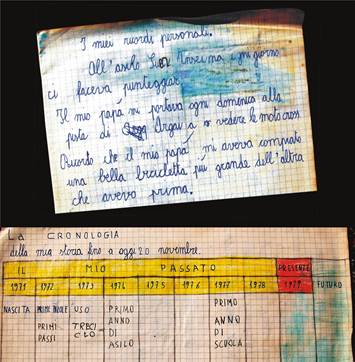 I miei ricordi personali.
All'asilo ogni giorno
ci faceva punteggiar.
Il mio papà mi portava ogni domenica alla
pista di a vedere le motocross
Ricordo che il mio papà mi aveva comprato
una bella bicicletta più grande dell'altra
che avevo prima.
LA CRONOLOGIA
della mia storia fino a oggi 20 novembre.
IL MIO PASSATO PRESENTE
1971 1972 1973 1974 1975 1976 1977 1978 1979 FUTURO
NASCITA PRIME USO PRIMO PRIMO
PRIMI TRECI ANNO ANNO
PASSI CLO DI DI
ASILO SCUOLA